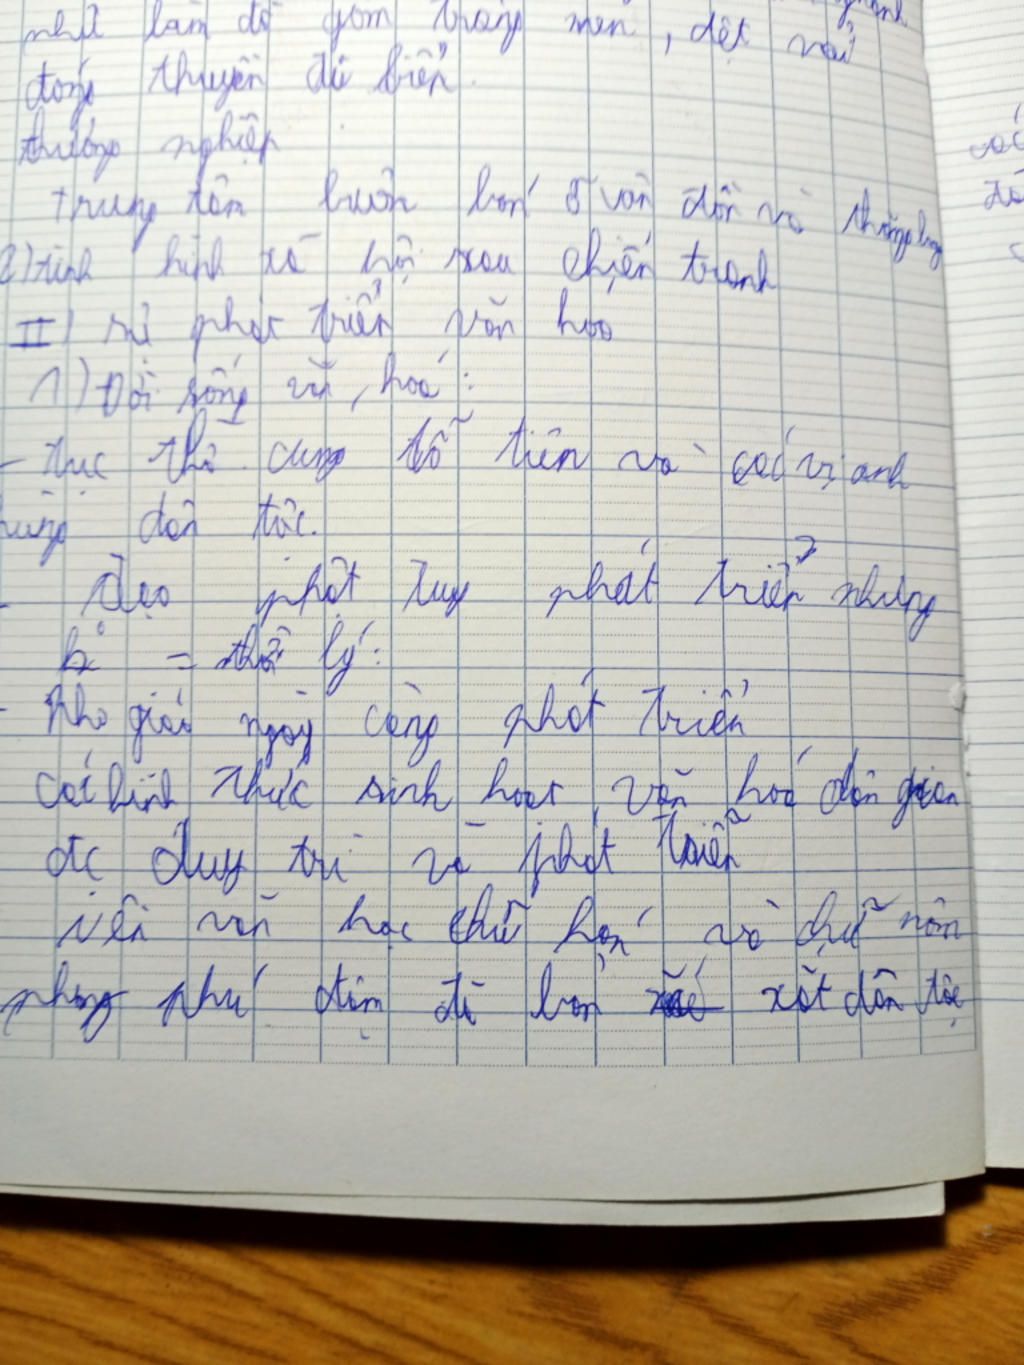 như làm đồ gốm tráng men, dệt vải
đóng thuyền đi biển.
thương nghiệp
trung tâm buôn bán ở vân đồn và thăng long
2) tình hình xã hội sau chiến tranh
II) sự phát triển văn hoá
1) Đời sống vă, hoá:
- tục thờ cúng tổ tiên và các vị anh
hùng dân tộc.
- Đạo phật tuy phát triển nhưng
bị = thời lý:
- Nho giáo ngày càng phát triển
các hình thức sinh hoạt văn hoá dân gian
đc duy trì và phát triển
nền văn học chữ hán và chữ nôm
phong phú đậm đà bản xắt dân tộc